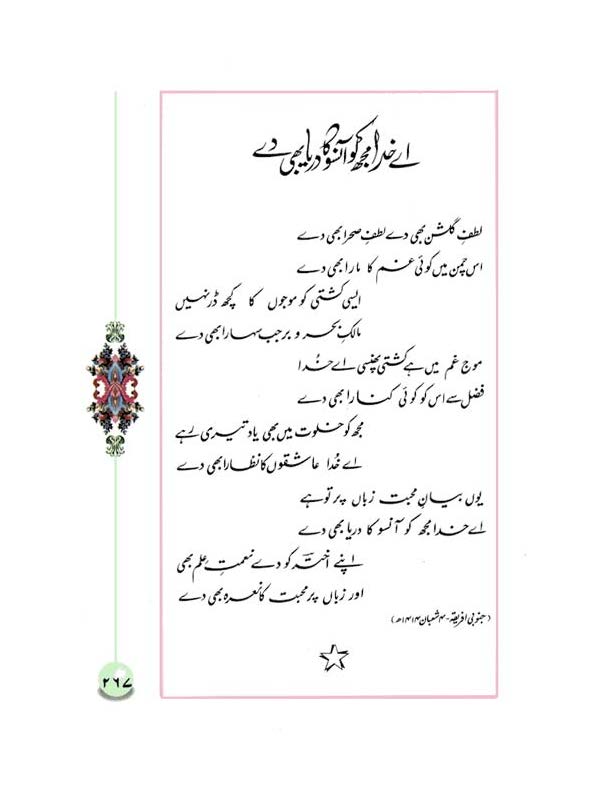 اے خدا مجھ کو آنسو کا دریا بھی دے
لطفِ گلشن بھی دے لطفِ صحرا بھی دے
اس چمن میں کوئی غم کا مارا بھی دے
ایسی کشتی کو موجوں کا کچھ ڈر نہیں
مالکِ بحر و بر جب سہارا بھی دے
موجِ غم میں ہے کشتی پھنسی اے خُدا
فضل سے اس کو کوئی کنارا بھی دے
مجھ کو خلوت میں بھی یاد تیری رہے
اے خُدا عاشقوں کا نظارا بھی دے
یوں بیانِ محبت زباں پر تو ہے
اے خدا مجھ کو آنسو کا دریا بھی دے
اپنے اخترؔ کو دے نعمتِ علم بھی
اور زباں پر محبت کا نعرہ بھی دے
(جنوبی افریقہ-۴ شعبان ۱۴۱۴ھ)
۲۶۷